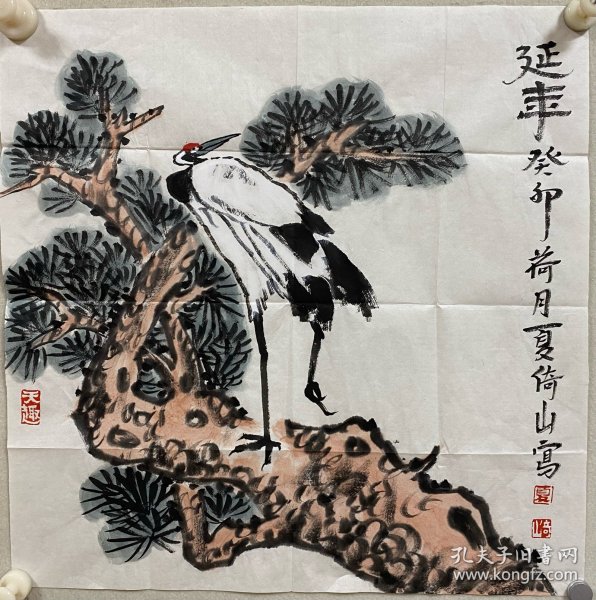 延年
癸卯荷月夏倚山寫
夏
倚
天趣
孔夫子旧书网
www.kongfz.com